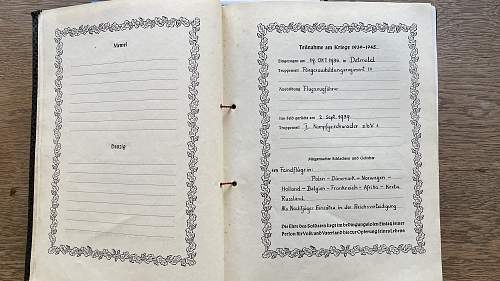 Memel
Danzig
Teilnahme am Kriege 1939-1945
Eingezogen am 09. OKT 1936 in Detmold
Truppenteil Fliegerausbildungsregiment
Ausbildung Flugzeugführer
Ins Feld gerückt am 2. Sept. 1939
Truppenteil I. Kampfgeschwader z.b.V. 1
Mitgemachte Schlachten und Gefechte
Feindflüge in:
Polen - Dänemark - Norwegen -
Holland - Belgien - Frankreich - Afrika - Kreta
Russland
Als Nachtjäger Einsätze in der Reichsverteidigung
Die Ehre des Soldaten liegt im bedingungslosen Einsatz seiner
Person für Volk und Vaterland bis zur Opferung seines Lebens